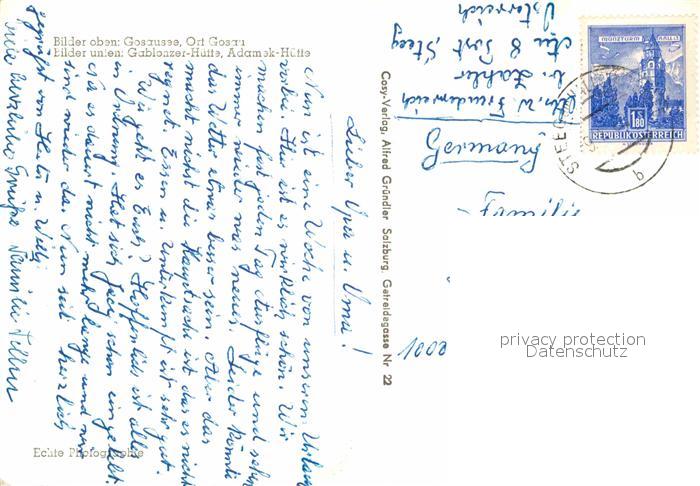 Bilder oben: Gosausee, Ort Gosau
Bilder unten: Gablonzer-Hütte, Adamek-Hütte
Lieber Opa u. Oma!
Nun ist eine Woche von unserem Urlaub
vorbei. Hier ist es wirklich schön. Wir
machen fast jeden Tag Ausflüge und sehen
immer wieder was neues. Leider könnte
das Wetter etwas besser sein. Aber das
macht nichts die Hauptsache ist das es nicht
regnet. Essen u. Unterkunft ist sehr gut.
Wie geht es Euch? Hoffentlich ist alles
in Ordnung. Hat sich schon eingelebt.
es dauert nicht mehr lange und wir
sind wieder da. Nun seid herzlich
gegrüßt von u. Willi
viele herzliche Grüße Familie
Echte Photographie
Cosy-Verlag, Alfred Gründler Salzburg, Getreidegasse Nr 22
Au 8 Post Steeg
Österreich
Germany
MÜNZTURM HALL i.T.
1.80
REPUBLIK ÖSTERREICH
STEEG
privacy protection
Datenschutz